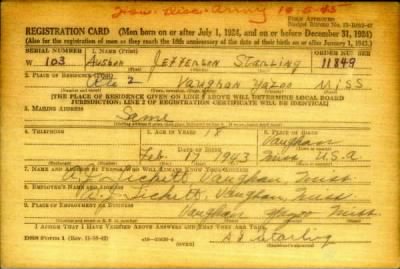 10-5-43
REGISTRATION CARD (Men born on or after July 1, 1924, and on or before December 31, 1924)
(Also for the registration of men as they reach the 18th anniversary of the date of their birth on or after January 1, 1943.)
SERIAL NUMBER 1. NAME (Print) ORDER NUMBER
W 103 Auston Jefferson Starling 11849
2. PLACE OF RESIDENCE (Print)
2 Vaughan Yazoo Miss
[THE PLACE OF RESIDENCE GIVEN ON LINE 2 ABOVE WILL DETERMINE LOCAL BOARD
JURISDICTION; LINE 2 OF REGISTRATION CERTIFICATE WILL BE IDENTICAL]
3. MAILING ADDRESS
Same
4. TELEPHONE 5. AGE IN YEARS 18 6. PLACE OF BIRTH
Vaughan
DATE OF BIRTH
Feb. 17 1943 Miss. U.S.A
7. NAME AND ADDRESS OF PERSON WHO WILL ALWAYS KNOW YOUR ADDRESS
Tickett, Vaughan, Miss.
8. EMPLOYER'S NAME AND ADDRESS
Tickett, Vaughan, Miss.
9. PLACE OF EMPLOYMENT OR BUSINESS
Vaughan Yazoo Miss.
I AFFIRM THAT I HAVE VERIFIED ABOVE ANSWERS AND THAT THEY ARE TRUE.
DSS Form 1 A J Starling